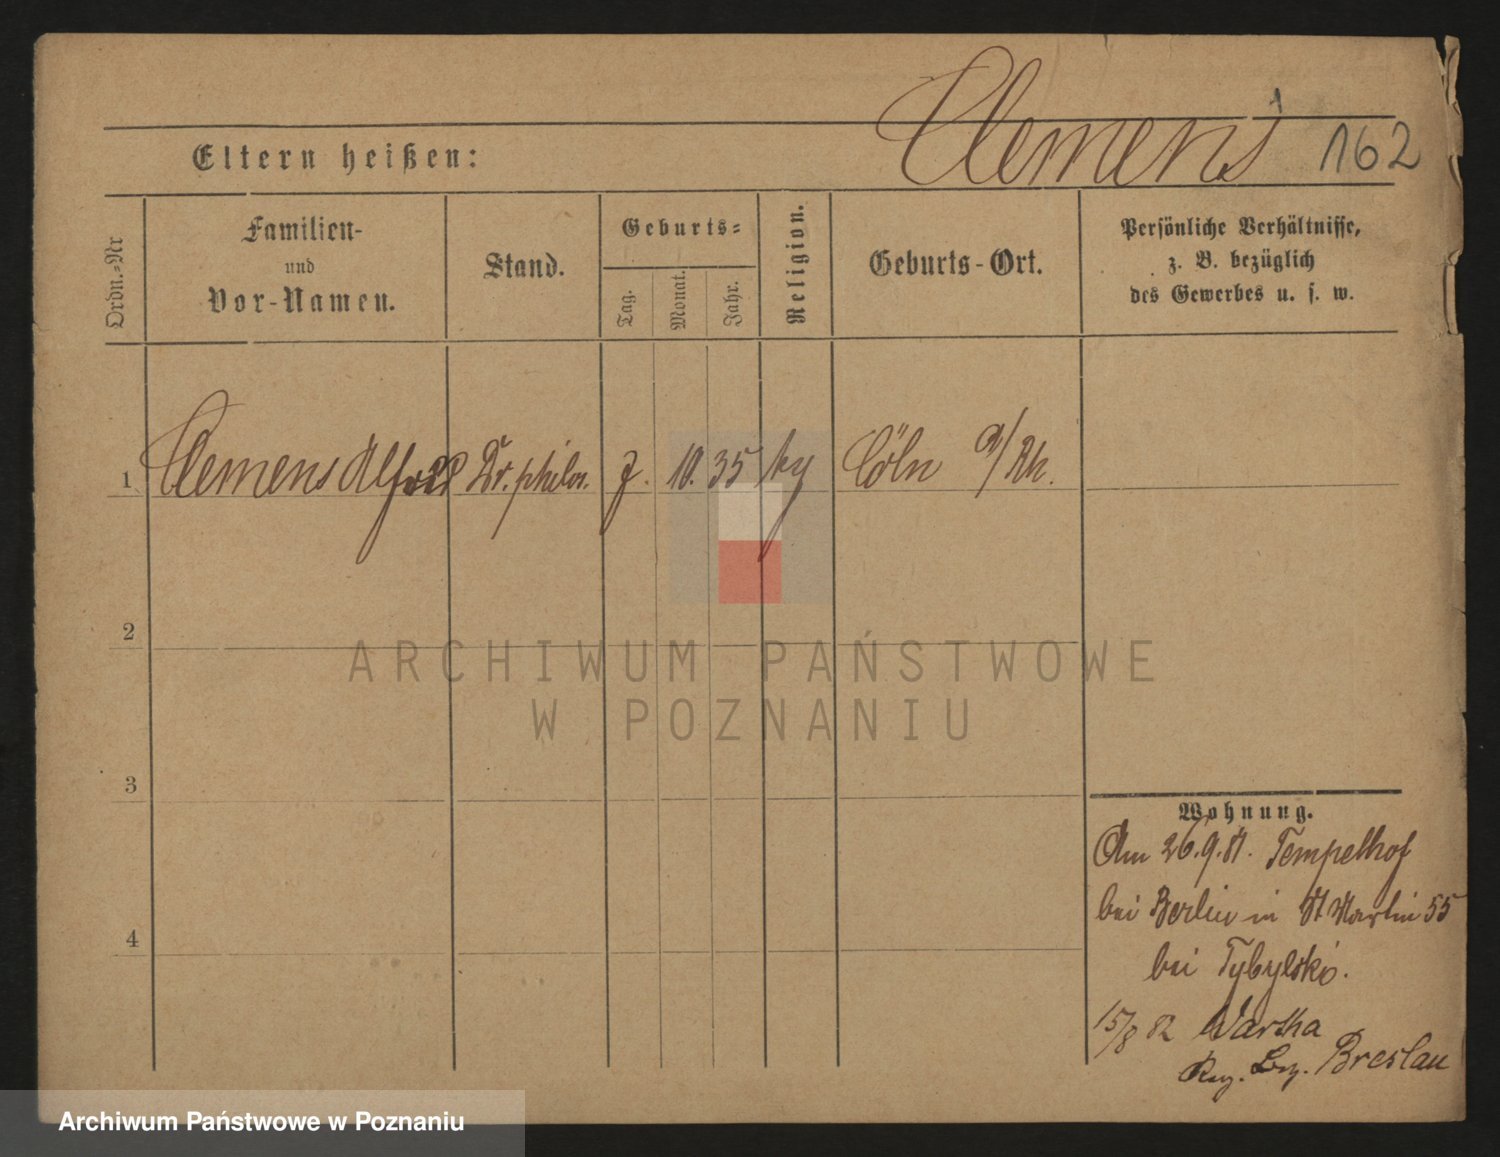 Clemens 162
Eltern heißen:
Ordn.-Nr
Familien-
und
Vor-Namen.
Stand.
Geburts-
Tag.
Monat.
Jahr.
Religion.
Geburts-Ort.
Persönliche Verhältnisse,
z. B. bezüglich
des Gewerbes u. s. w.
1 Clemens Alfred Dr. philos. 7. 10. 35 Cöln a/Rh.
2
3
4
Wohnung.
Am 26.9.81. Tempelhof
bei Berlin in St Martin 55
bei
15/8 82 Wartha
Reg. Bez. Breslau
ARCHIWUM PAŃSTWOWE
W POZNANIU
Archiwum Państwowe w Poznaniu